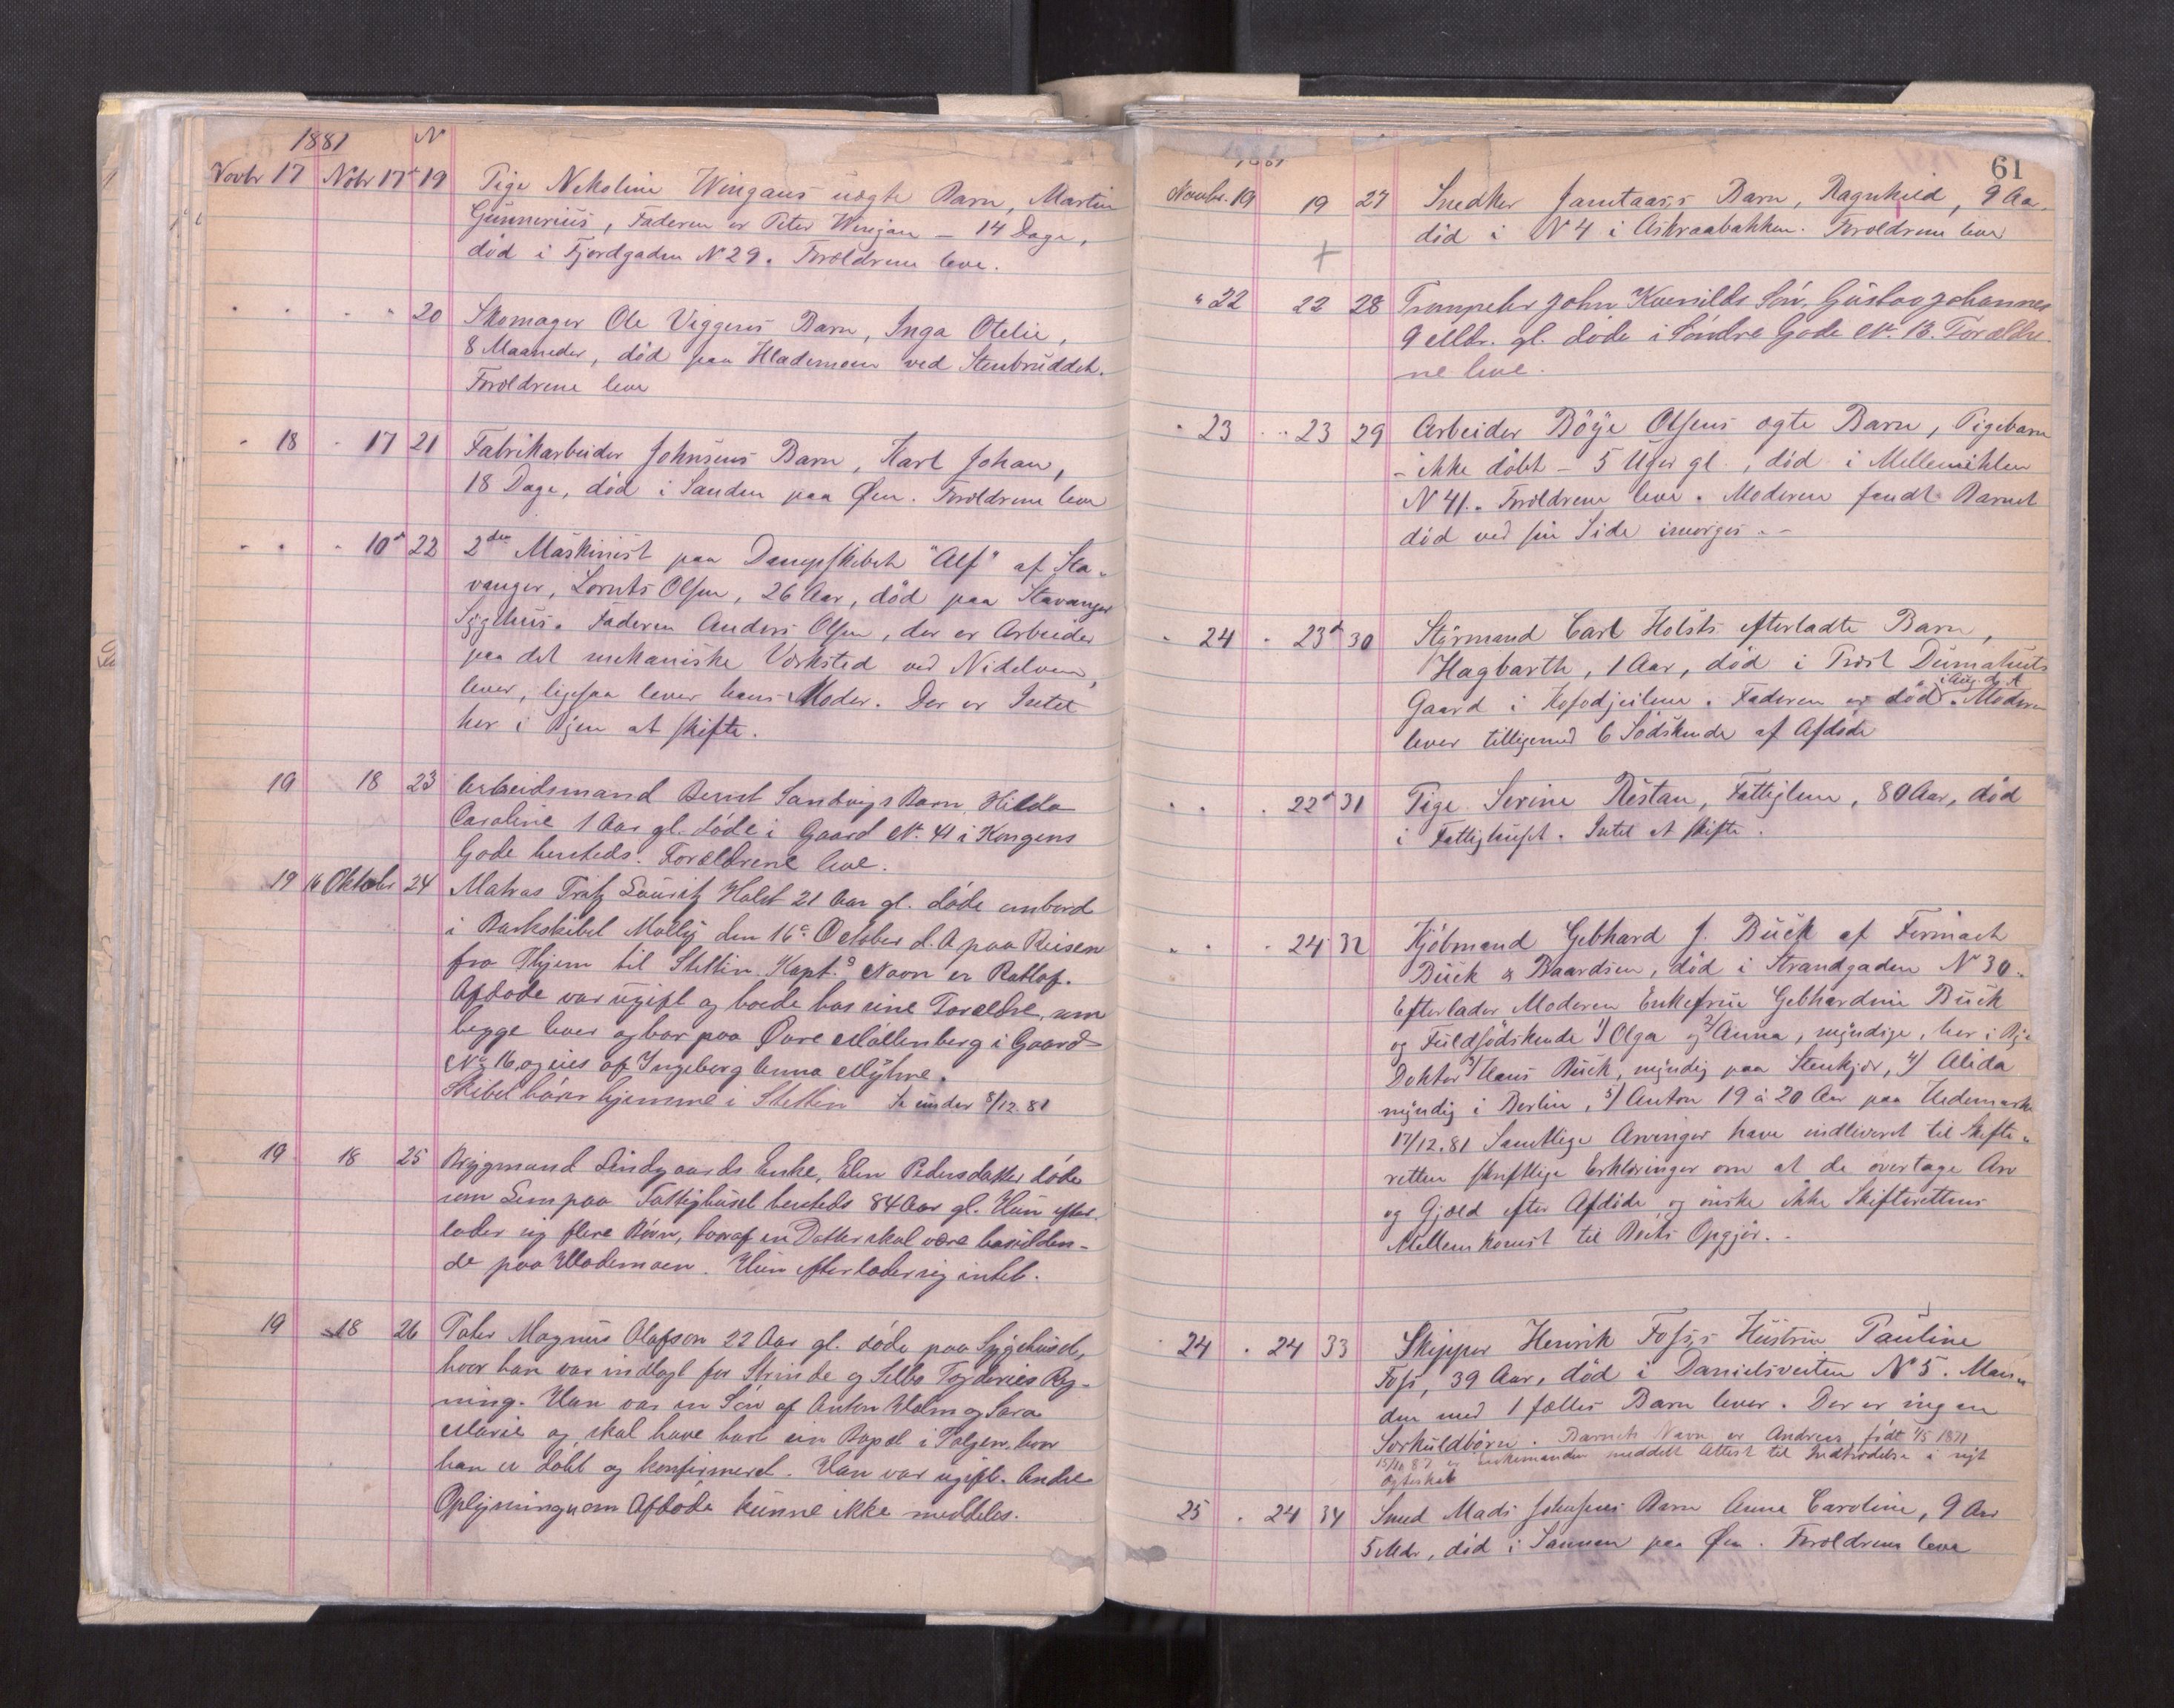 1881 N
Novbr 17 Nobr 17 19 Pige Nikoline Wingans uægte Barn, Martin
Gunnerius, Faderen er Peter Wingan - 14 Dage,
död i Fjordgaden N 29. Forældrene leve.
20 Skomager Ole Viggens Barn, Inga Otelie,
8 Maaneder, död paa Hlademoen ved Stenbruddet.
Forældrene leve
18 17 21 Fabrikarbeider Johnsens Barn, Karl Johan,
18 Dage, död i Sanden paa Øen. Forældrene leve
10 22 2den Maskinist paa Dampskibet "Alf" af Sta-
vanger, Lornts Olsen, 26 Aar, död paa Stavanger
Sygehus. Faderen Anders Olsen, der er Arbeider
paa det mekaniske Værksted ved Nidelven,
lever, ligesaa lever hans Moder. Der er Intet
her i Byen at skifte.
19 18 23 Arbeidsmand Bernt Sandvigs Barn Hilda
Caroline 1 Aar gl. døde i Gaard No. 41 i Kongens
Gade hersteds. Forældrene leve.
19 16 Oktober 24 Matros Fritz Lauritz Holst 21 Aar gl. døde ombord
i Barkskibet Mally den 16de October d. A paa Reisen
fra Thjem til Stettin. Kapt.s Navn er Ratlof.
Afdøde var ugift og boede hos sine Forældre, som
begge lever og bor paa Øvre Møllenberg i Gaard
No 16 og eies af Ingeborg Anna Myhre.
Skibet hører hjemme i Stettin Se under 8/12 81
19 18 25 Brygmand Lindgaards Enke, Elen Pedersdatter døde
som Lem paa Fattighuset hersteds 84 Aar gl. Hun efter-
lader sig flere Børn, hvoraf en Datter skal være bosidden-
de paa Hlademoen. Hun efterlader sig intet.
19 18 26 Tater Magnus Olafson 22 Aar gl. døde paa Sygehuset,
hvor han var indlagt for Strinde og Selbo Fogderies Reg-
ning. Han var en Søn af Anton Holm og Sara
Marie og skal have havt sin Bopæl i Tolgen, hvor
han er døbt og konfirmeret. Han var ugift. Andre
Oplysninger om Afdøde kunne ikke meddeles.
61
1881
Novbr. 19 19 27 Snedker Jamtaas's Barn, Ragnhild, 9 Aa.
död i N 4 i Askraabakken. Forældrene leve
22 22 28 Trompeter John Kvenilds Søn, Gustav Johannes
9 Mdr. gl. døde i Søndre Gade No. 13. Forældre-
ne leve.
23 23 29 Arbeider Böye Olsens ægte Barn, Pigebarn
- ikke döbt - 5 Uger gl., död i Mellemihlen
N 41. Forældrene leve. Moderen fandt Barnet
död ved sin Side imorges.-
24 23 30 Styrmand Carl Holsts efterladte Barn,
Hagbarth, 1 Aar, död i Prost Dumahuts
Gaard i . Faderen er död i Aug. d. A. Moderen
lever tilligemed 6 Södskende af Afdöde
22 31 Pige Serine Ristan, Fattiglem, 80 Aar, död
i Fattighuset. Intet at skifte.
24 32 Kjöbmand Gebhard J. Buck af Firmaet
Buck & Baardsen, död i Strandgaden N 30.
Efterlader Moderen Enkefrue Gebhardine Buck
og Fuldsödskende 1/ Olga og 2/ Anna, myndige, her i Bye
Doktor 3/ Hans Buck, myndig paa Stenkjær, 4/ Alida
myndig i Berlin, 5/ Anton 19 à 20 Aar paa Hedemarke
17/12.81 Samtlige Arvinger have indleveret til Skifte-
retten skriftlige Erklæringer om at de overtage Arv
og Gjæld efter Afdöde og önske ikke Skifterettens
Mellemkomst til Boets Opgjör.
24 24 33 Skipper Henrik Foss's Hustru Pauline
Foss, 39 Aar, död i Danielsveiten N 5. Man-
den med 1 fælles Barn lever. Der er ingen
Særkuldbörn. Barnets Navn er Andreas, födt 1/5 1871
15/10 83 er Enkemanden meddelt Attest til Indtrædelse i nyt
Ægteskab
25 24 34 Smed Mads Johnsens Barn Anne Caroline, 9 Aar
5 Mdr, död i Sannan paa Øen. Forældrene leve